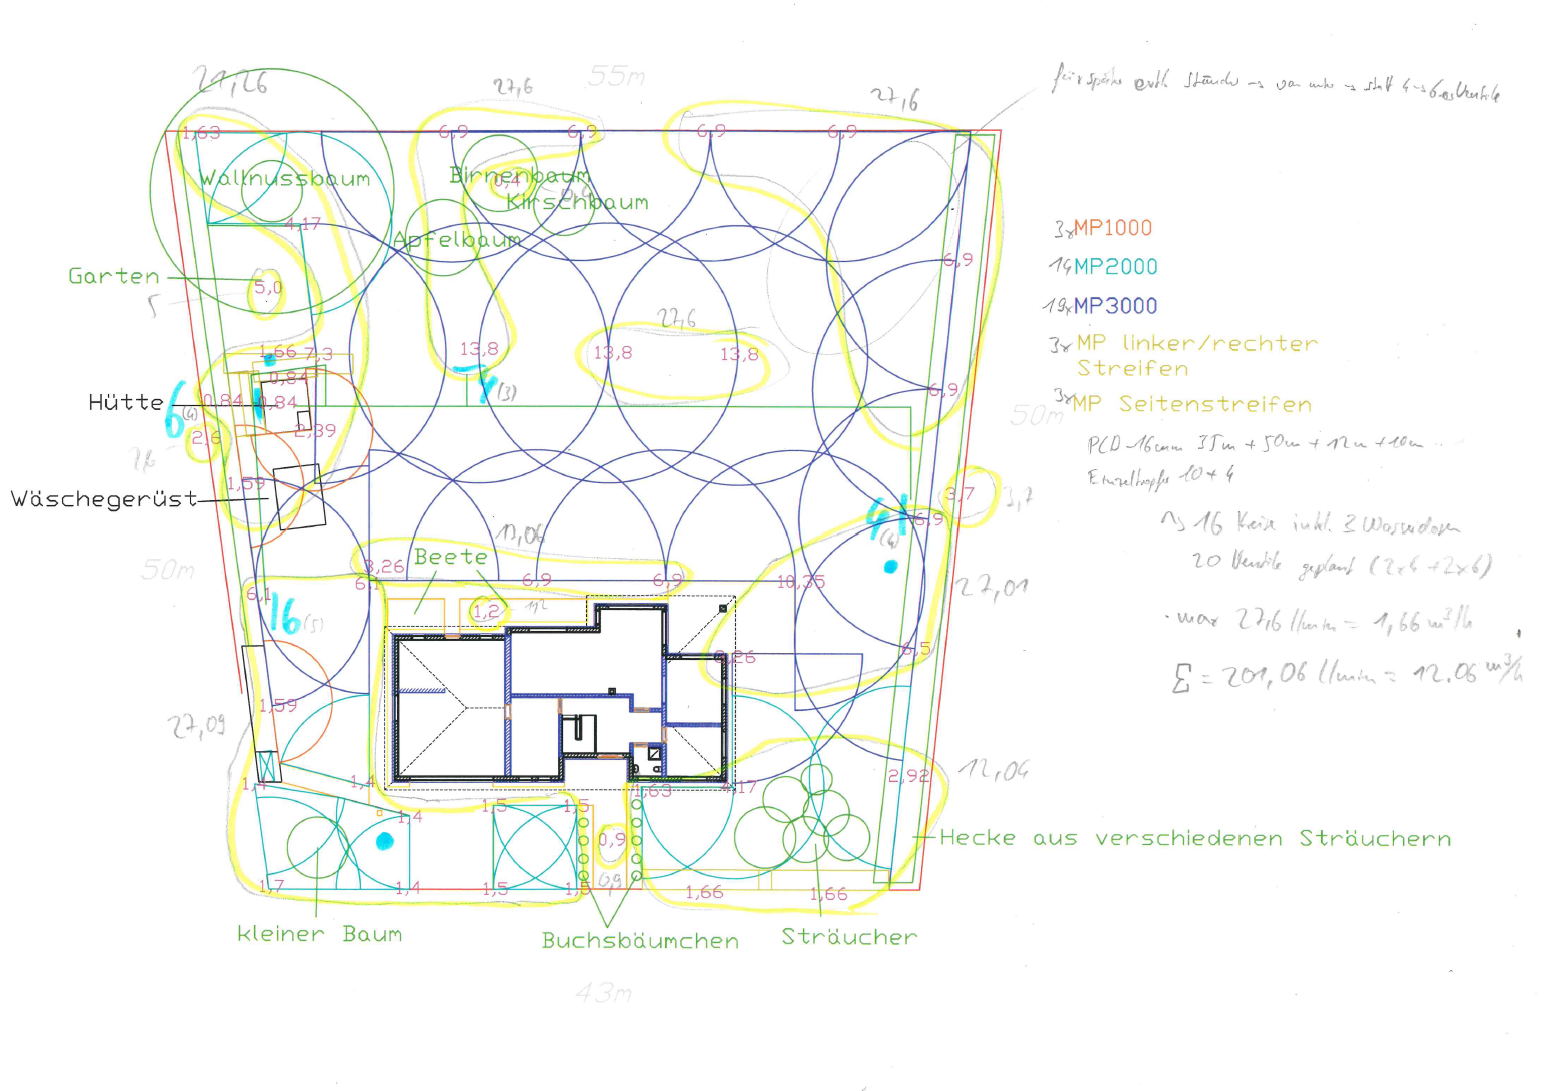 55m
21,26
27,6
27,6
1,63
6,9
6,9
6,9
6,9
Wallnussbaum
Birnenbaum
0,4
Kirschbaum
4,17
Apfelbaum
3x MP1000
14 MP2000
19x MP3000
3x MP linker/rechter
Streifen
3x MP Seitenstreifen
Garten
5,0
5
6,9
27,6
1,66 7,3
13,8
13,8
13,8
0,84
Hütte
6
(4)
0,84
0,84
7
(3)
6,9
50m
2,6
2,39
2,6
PCD-16mm 35m + 50m + 12m + 10m
10 + 4
1,59
Wäschegerüst
3,7
3,7
6,9
41
(4)
16 Kreise inkl. 3 Wasserdosen
20 Ventile geplant (2x6 + 2x6)
13,06
Beete
50m
3,26
6,1
6,1
6,9
6,9
10,35
27,01
1,2
1,2
16 (5)
max 27,6 l/min = 1,66 m³/h
6,5
3,26
Σ = 201,06 l/min = 12.06 m³/h
1,59
27,09
1,4
1,4
1,63
4,17
2,92
12,04
1,4
1,5
1,5
0,9
Hecke aus verschiedenen Sträuchern
0,9
1,7
1,4
1,5
1,5
1,66
1,66
kleiner Baum
Buchsbäumchen
Sträucher
43m